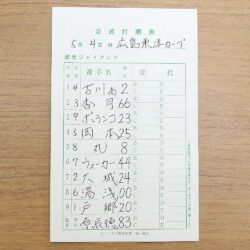 公式打順表
5月4日対広島東洋カープ
読売ジャイアンツ
選手名 交代
1 4 吉川尚 2
2 3 香月 66
3 9 ポランコ 23
4 5 岡本 25
5 8 丸 8
6 7 ウォーカー 44
7 2 大城 24
8 6 湯浅 00
9 1 戸郷 20
原辰徳 83